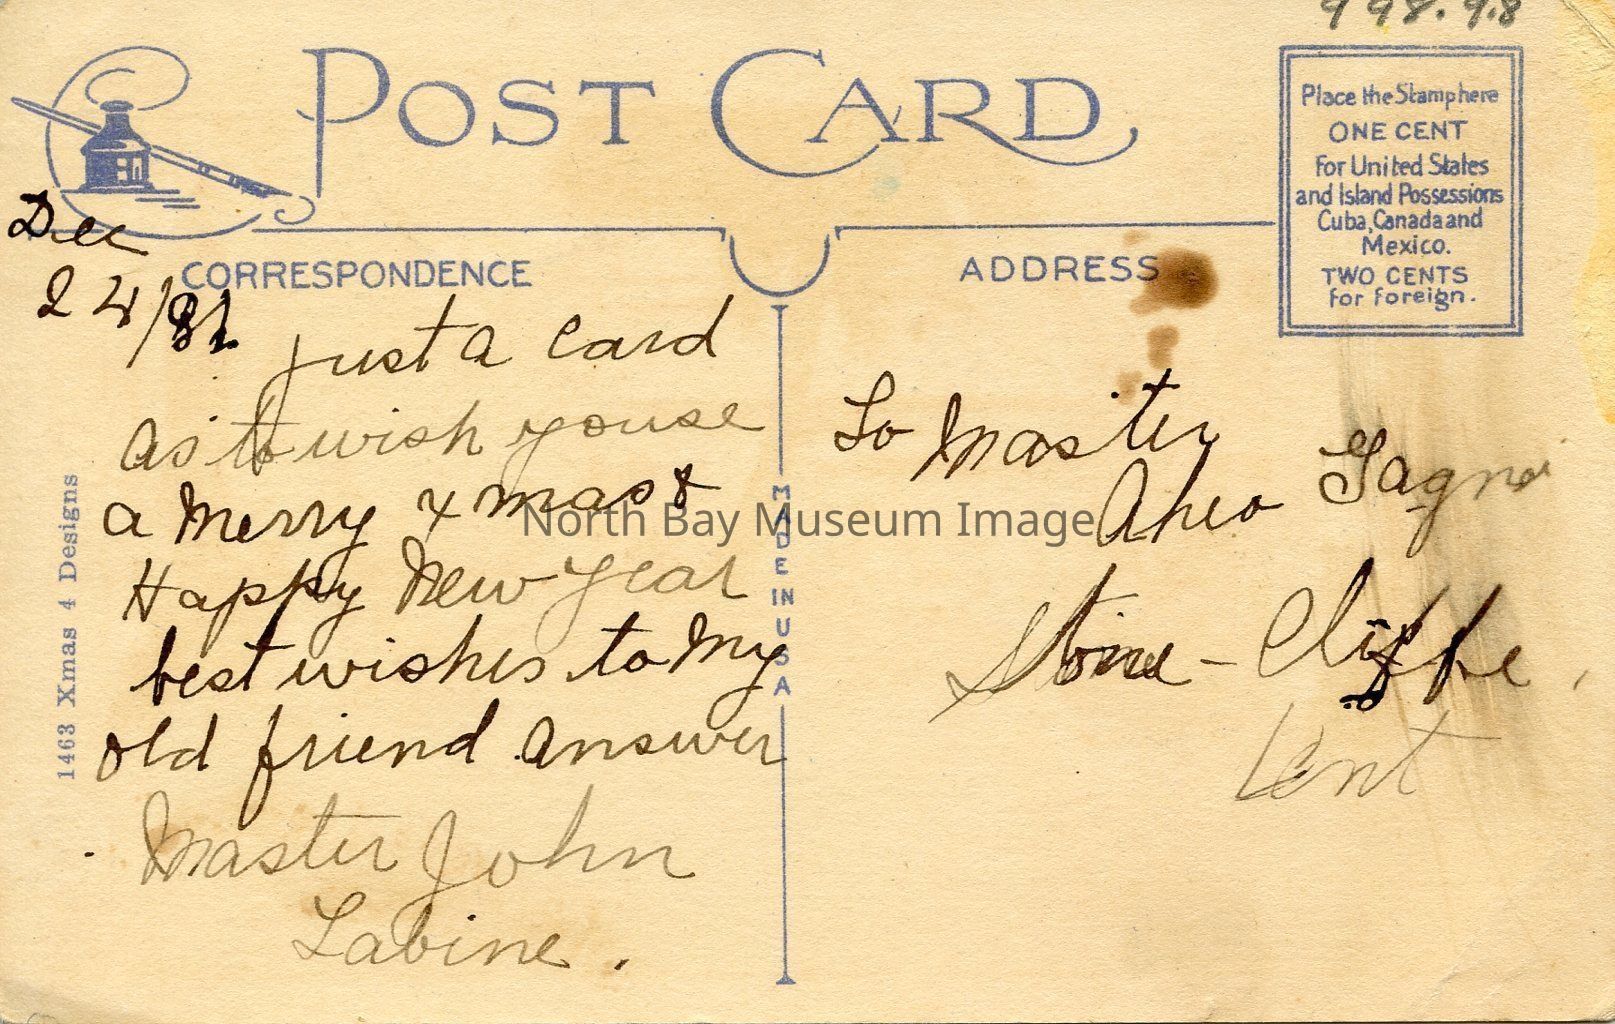 998.9.8
POST CARD
Place the Stamp here
ONE CENT
For United States
and Island Possessions
Cuba, Canada and
Mexico.
TWO CENTS
For Foreign.
CORRESPONDENCE
ADDRESS
Dec
24/31
just a card
as to wish youse
a Merry Xmas &
Happy New Year
best wishes to My
old friend answer
Master John
Labine.
To Master
Gagne
Stone-Cliffe,
Ont
1463 Xmas 4 Designs
MADE IN USA
North Bay Museum Image